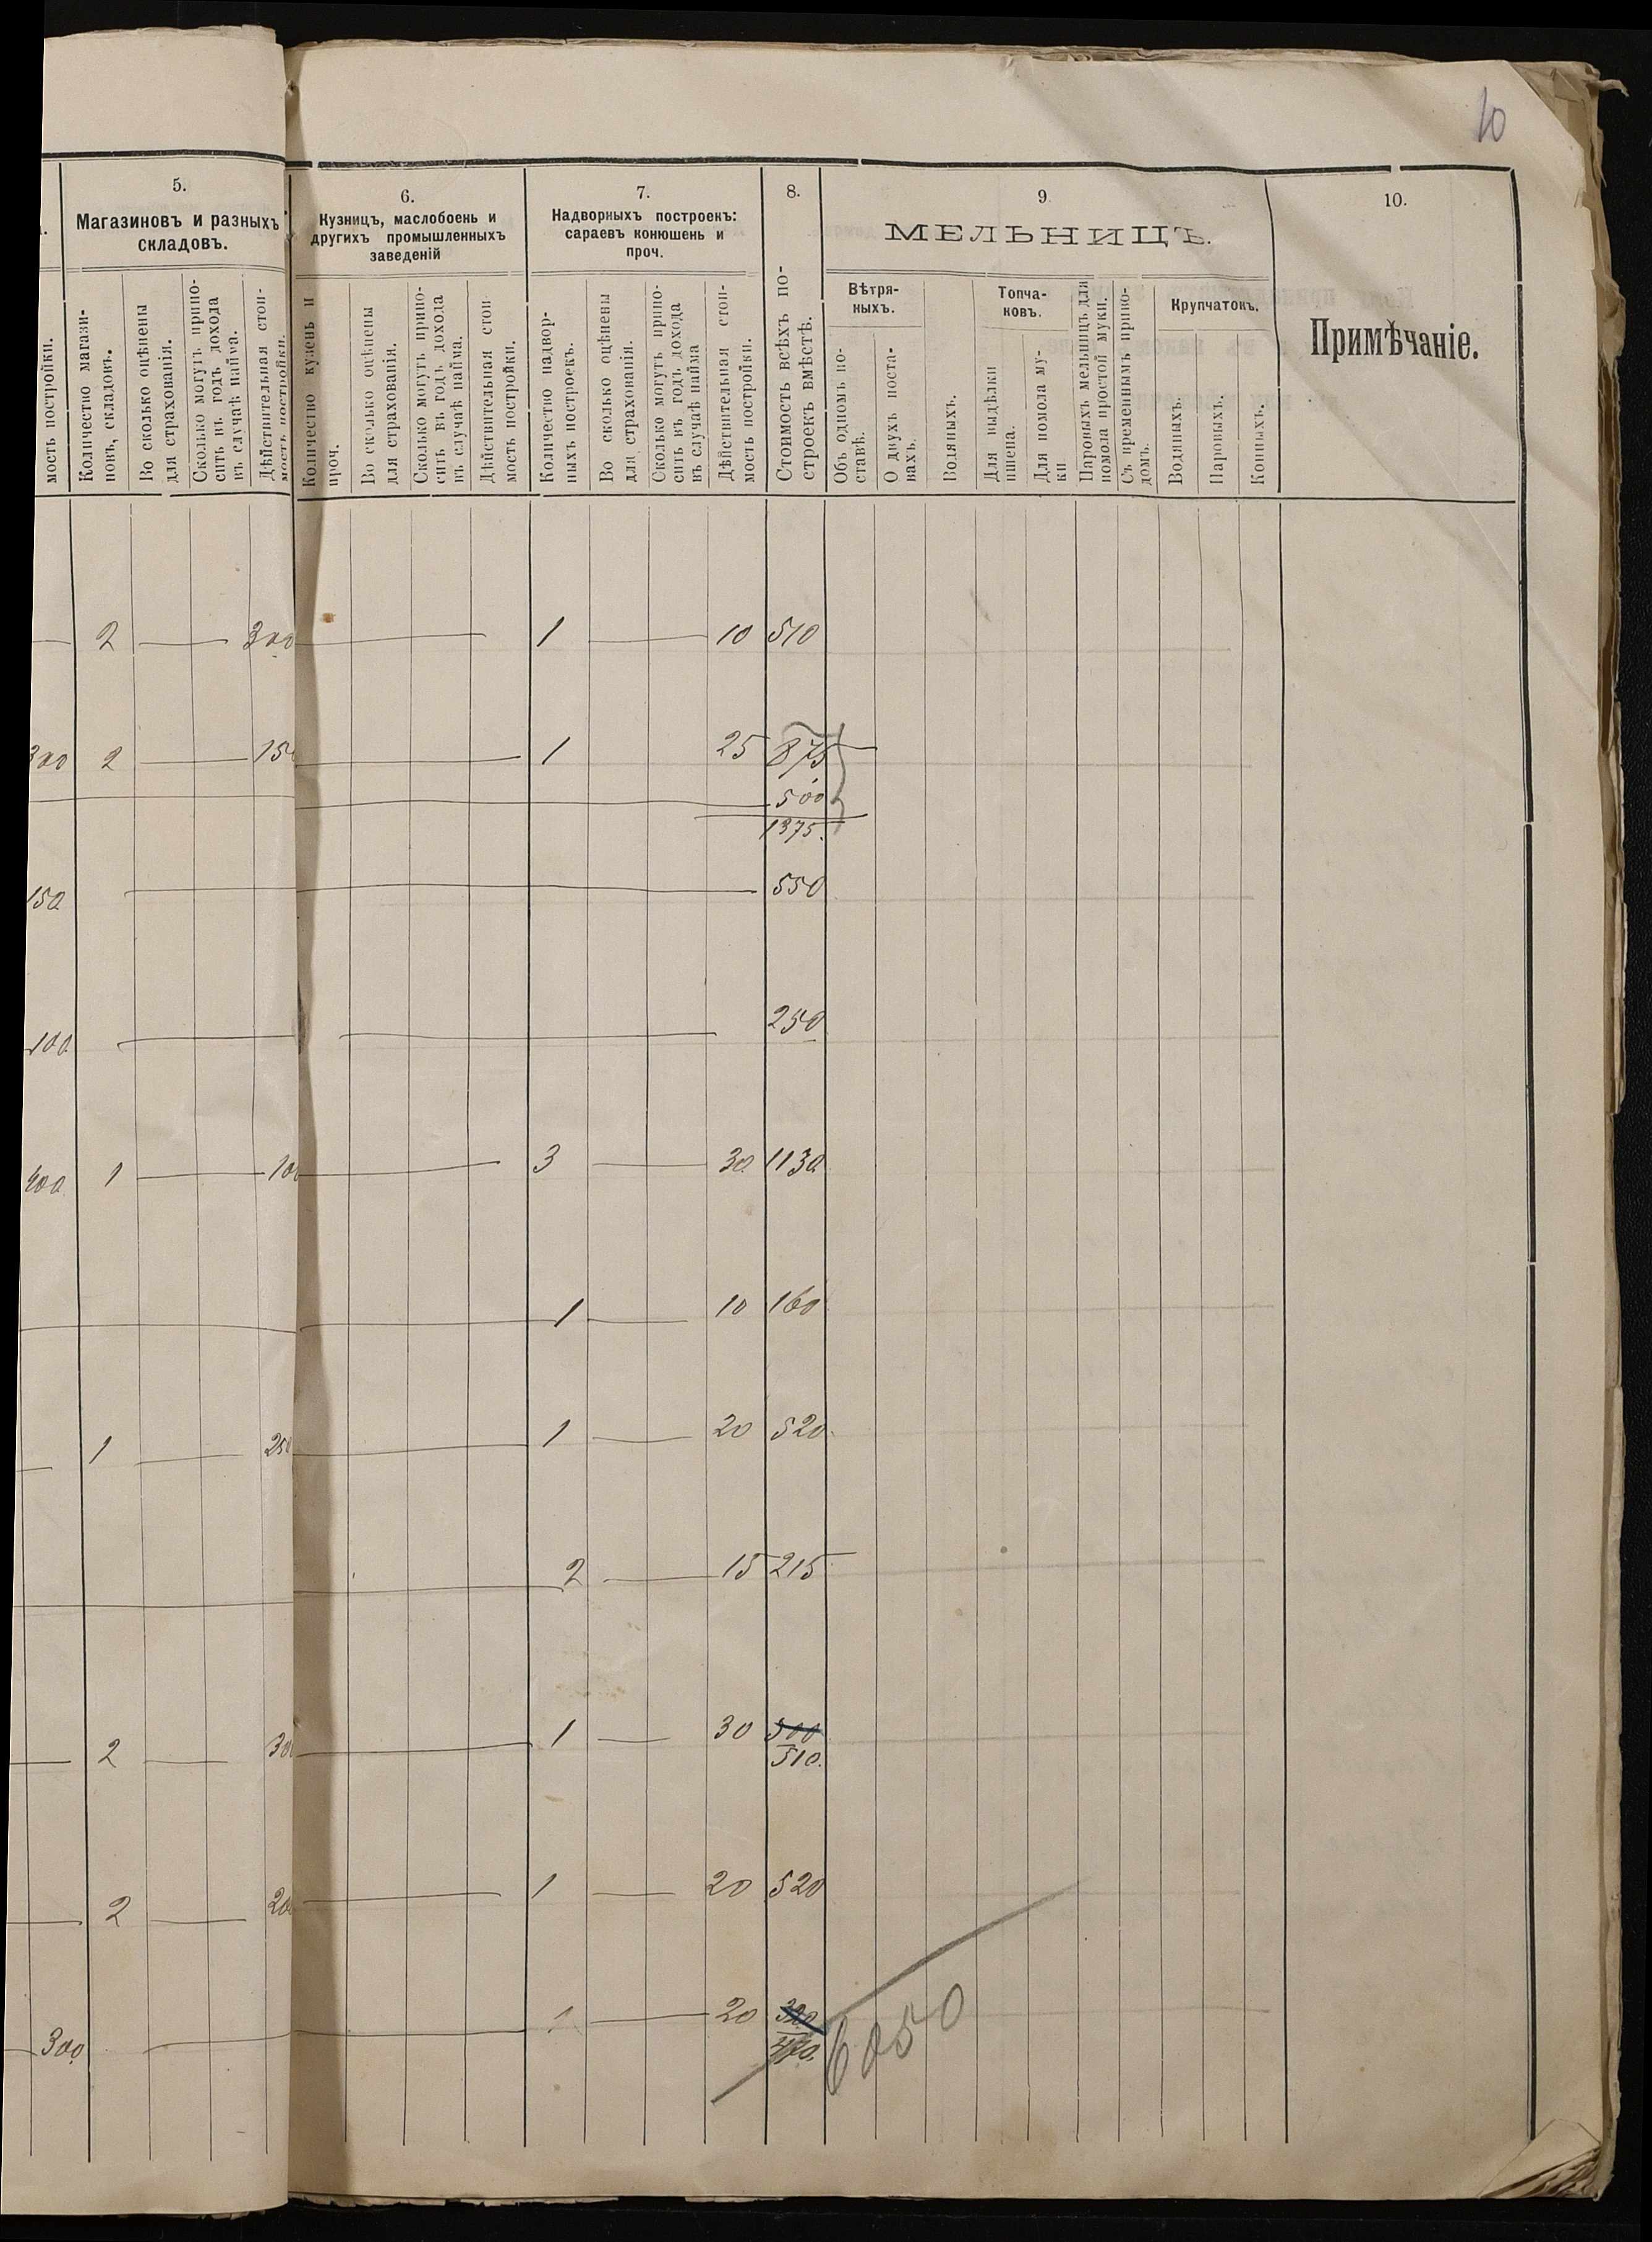 10
5.
Магазиновъ и разныхъ
складовъ.
6.
Кузницъ, маслобоень и
другихъ промышленныхъ
заведеній
7.
Надворныхъ построекъ:
сараевъ конюшень и
проч.
8.
9
МЕЛЬНИЦЪ.
10.
Примѣчаніе.
мость постройки.
Количество магази-
новъ, складовъ.
Во сколько оцѣнены
для страхованія.
Сколько могутъ прино-
сить въ годъ дохода
въ случаѣ найма.
Дѣйствительная стои-
мость постройки.
Количество кузень и
проч.
Во сколько оцѣнены
для страхованія.
Сколько могутъ прино-
сить въ годъ дохода
въ случаѣ найма.
Дѣйствительная стои-
мость постройки.
Количество надвор-
ныхъ построекъ.
Во сколько оцѣнены
для страхованія.
Сколько могутъ прино-
сить въ годъ дохода
въ случаѣ найма
Дѣйствительная стои-
мость постройки.
Стоимость всѣхъ по-
строекъ вмѣстѣ.
Вѣтря-
ныхъ.
Объ одномъ по-
ставѣ.
О двухъ поста-
вахъ.
Водяныхъ.
Топча-
ковъ.
Для выдѣлки
пшена.
Для помола му-
ки
Паровыхъ мельницъ для
помола простой муки.
Съ временнымъ приво-
домъ.
Крупчатокъ.
Водяныхъ.
Паровыхъ.
Конныхъ.
2 300 1 10 510
300 2 150 1 25 875
500
1375.
150 550
100 250
400 1 100 3 30 1130
1 10 160
1 250 1 20 520
2 15 215
2 300 1 30 500
510.
2 200 1 20 520
300 1 20 300
6050